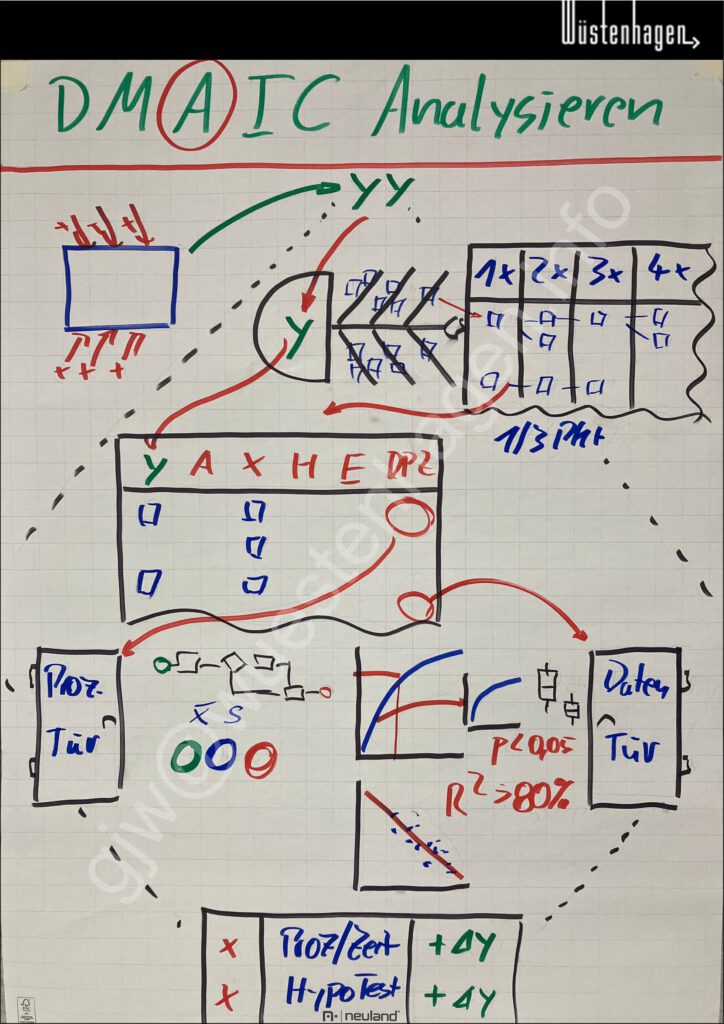 Wüstenhagen
DMAIC Analysieren
yy
x x x
1x 2x 3x 4x
y
x x x
1/3 Pkt
Y A X H E DPZ
Proz-
Tür
x̄ s
Daten
Tür
p<0,05
R²>80%
x Proz/Zert +Δy
x HypoTest +Δy
neuland
gjw@wuestenhagen.info